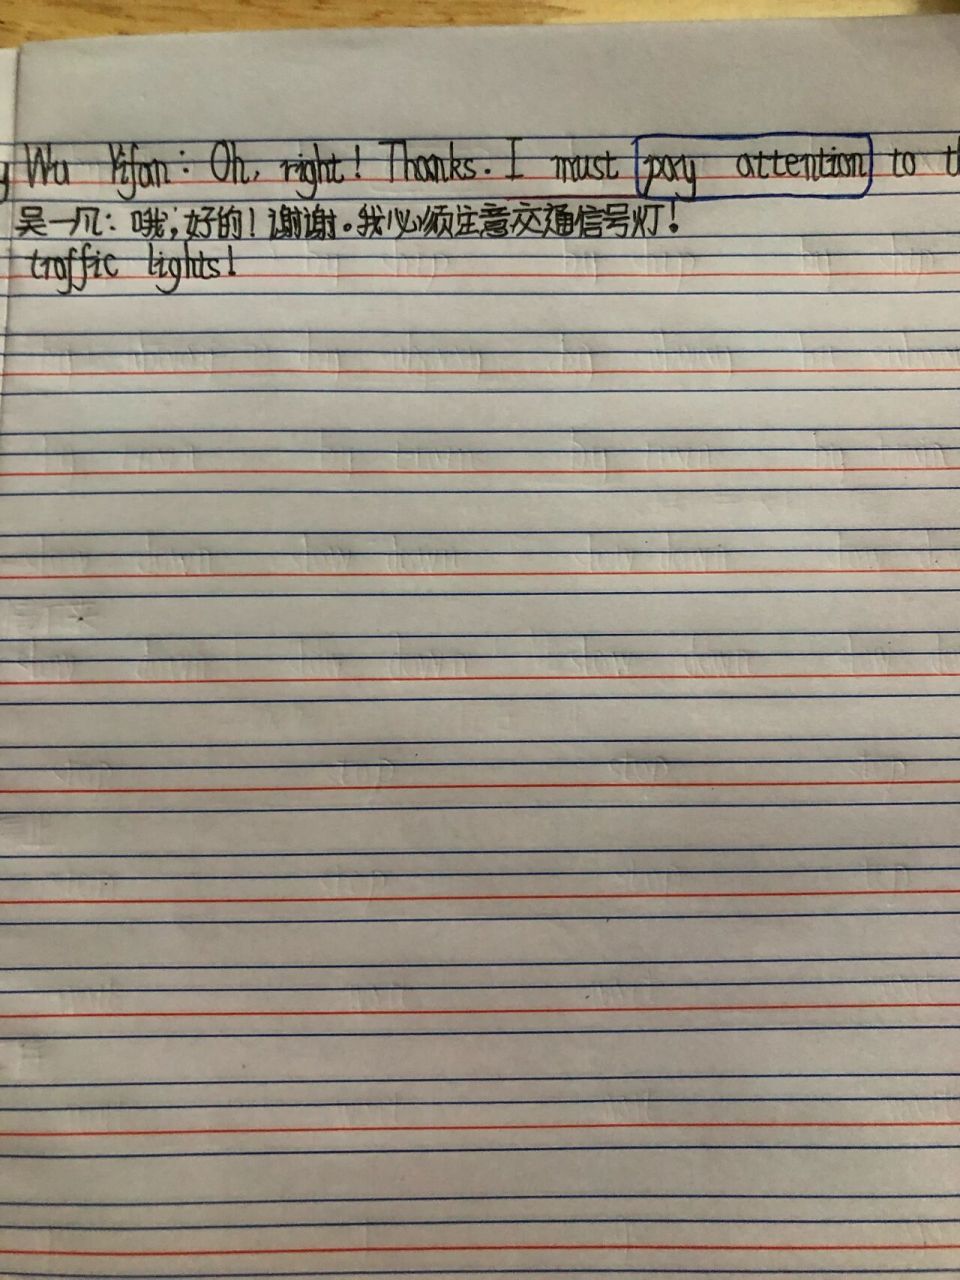 Wu Yifan: Oh, right! Thanks. I must pay attention to t
吴一凡: 哦,好的! 谢谢。我必须注意交通信号灯!
traffic lights!